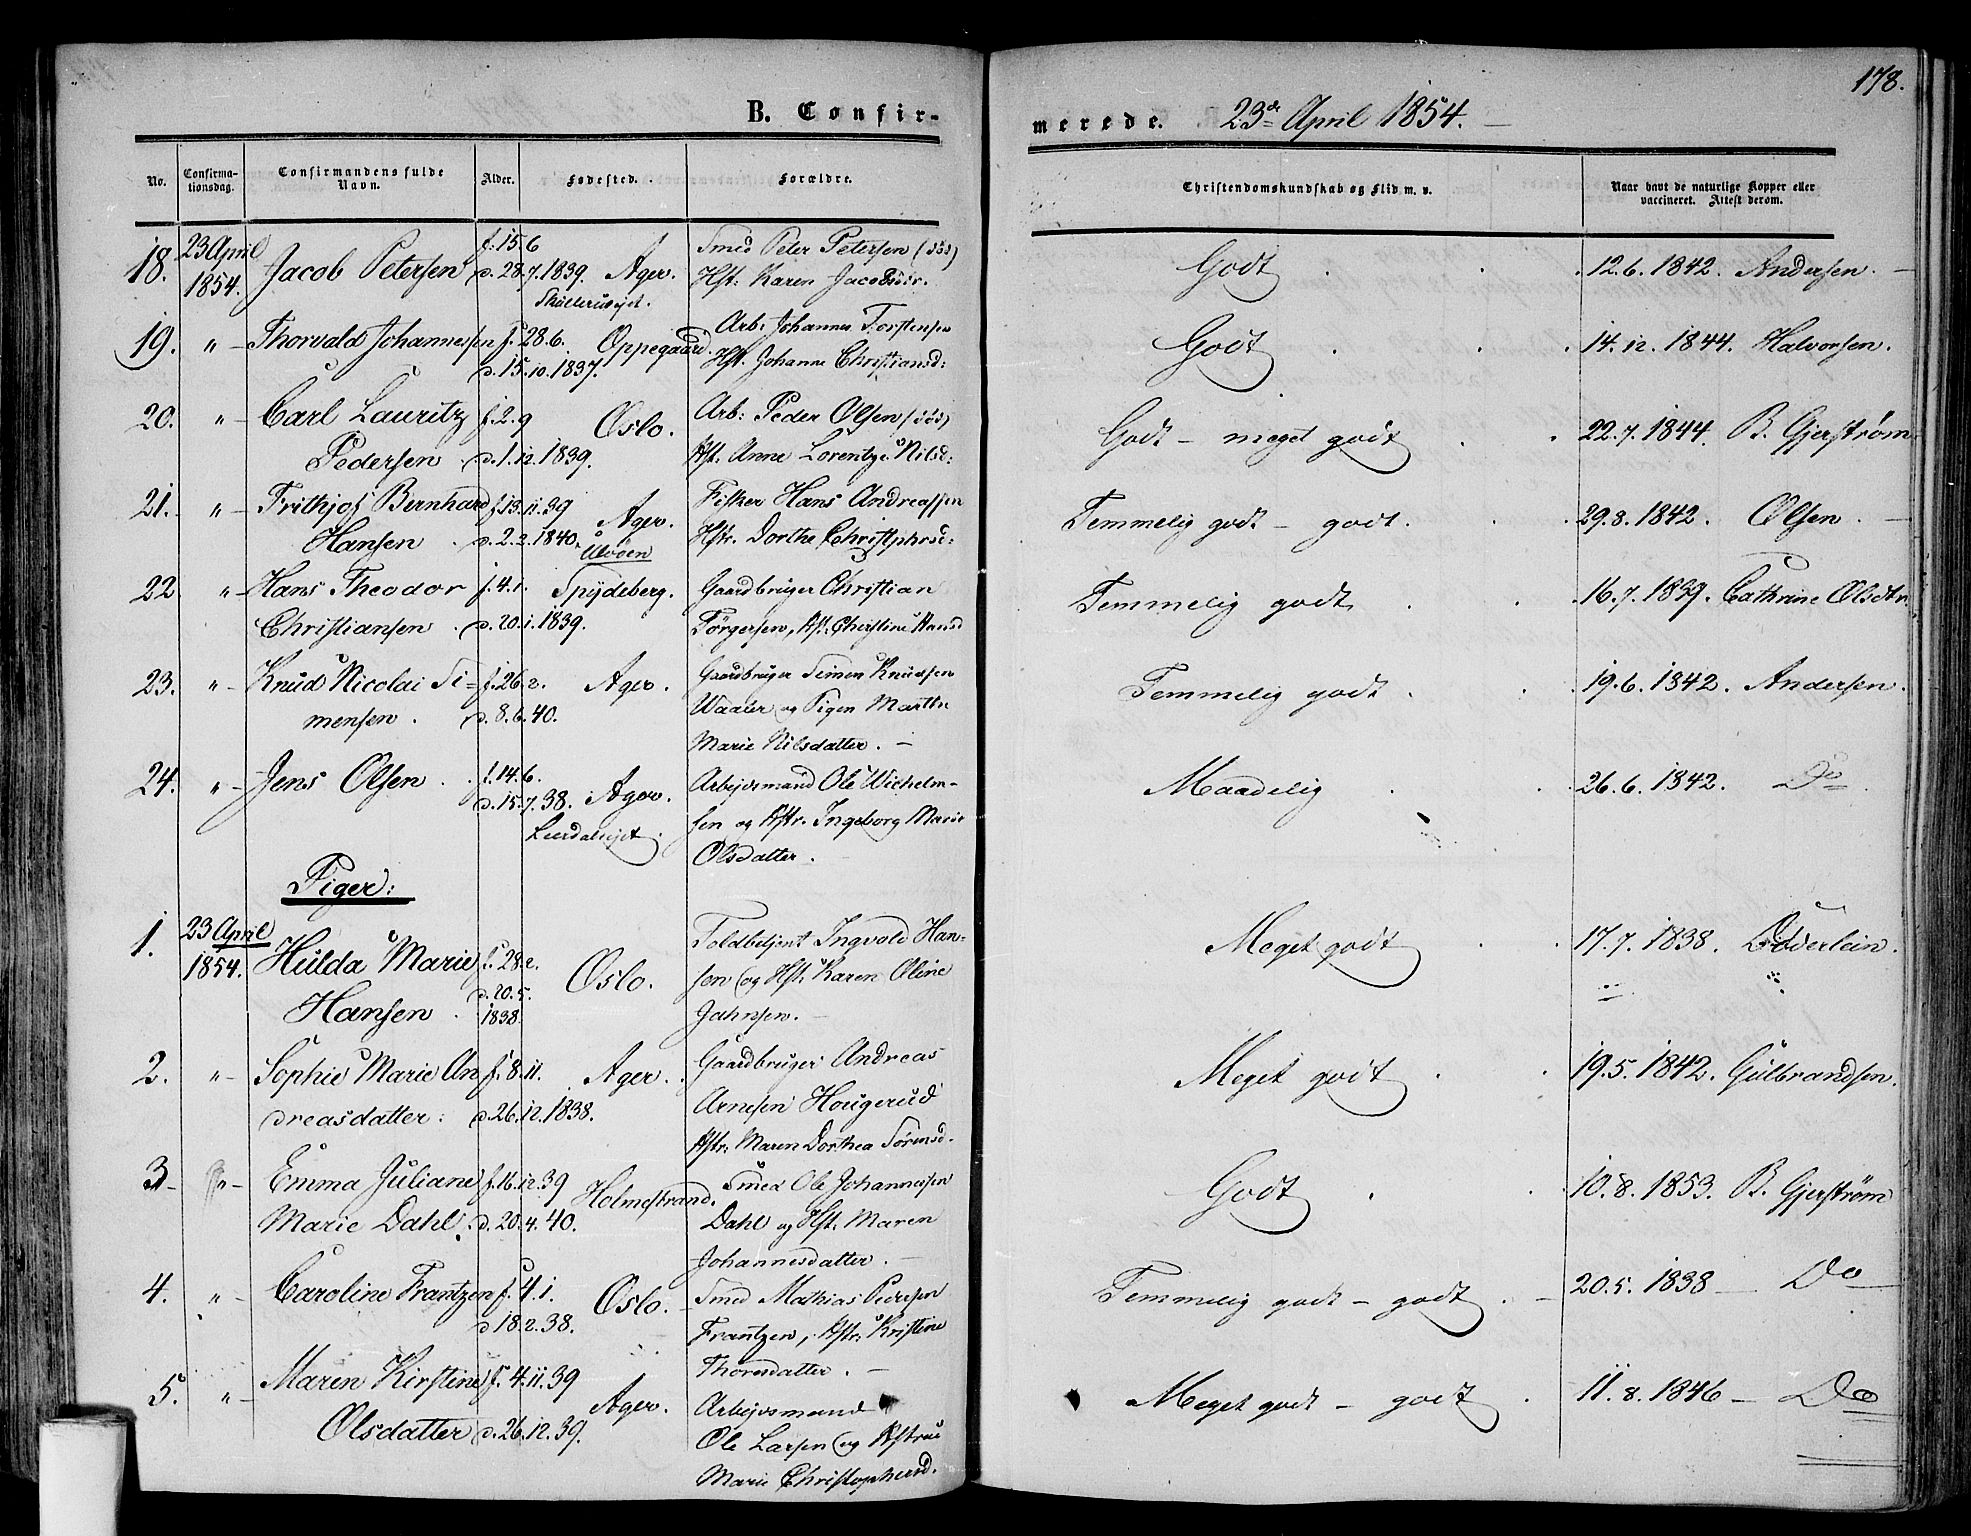 178.
B. Confir-
merede. 23de April 1854. –
No.
Confirma-
tionsdag.
Confirmandens fulde
Navn.
Alder.
Fødested.
Forældre.
Christendomskundskab og Flid m. v.
Naar havt de naturlige Kopper eller
vaccineret. Attest derom.
18. 23 April Jacob Petersen f. 15.6 Ager. Smed Peter Petersen (død) Godt 12.6. 1842. Andersen. –
1854. d. 28.7.1839. Hst: Karen Jacobsdr.
19. " – Thorvald Johannessen f. 28.6. Oppegaard. Arb: Johannes Torstensen Godt 14.12. 1844. Halvorsen.
d. 15.10.1837. Hst. Johanne Christiansd:
20. " – Carl Lauritz f. 2.9 Oslo. Arb: Peder Olsen (død) Godt – meget godt 22.7. 1844. B. Gjerstrøm
Pedersen d. 1.12.1839. Hst. Anne Lorentze Nilsd:
21. " – Frithjof Bernhard f. 13.11.39 Ager. Fisker Hans Andreassen Temmelig godt – godt. 29.8. 1842. Olsen. –
Hansen d. 2.2.1840. Ulvøen Hstr. Dorthe Christophersd:
22 " – Hans Theodor f. 4.1. Spydeberg. Gaardbruger Christian Temmelig godt 16.7. 1839. Cathrine Olsdtr.
Christiansen d. 20.1.1839. Törgersen, Hst. Christine Hansd
23. " – Knud Nicolai Si= f. 26.2. Ager. Gaardbruger Simen Knudsen Temmelig godt 19.6. 1842. Andersen.
mensen. d. 8.6.40. Waaler og Pigen Marthe
Marie Nilsdatter. –
24. " – Jens Olsen. f. 14.6. Ager. Arbejdsmand Ole Wilhelm- Maadelig 26.6. 1842. Do
d. 15.7.38. sen og Hstr. Ingeborg Marie
Olsdatter.
Piger:
1. 23 April Hulda Marie f. 28.2. Oslo. Toldbetjent Ingvald Han- Meget godt 17.7. 1838. Döderlein.
1854. Hansen d. 20.5. sen og Hst. Karen Oline
1838. Jahnsen. –
2. " – Sophie Marie An f. 8.11. Ager. Gaardbruger Andreas Meget godt 19.5. 1842. Gulbrandsen.
dreasdatter: d. 26.12.1838. Arnesen Hougerud
Hstr: Maren Dorthea Sörensd.
3 – " – Emma Juliane f. 16.12.39 Holmestrand. Smed Ole Johannesen Godt 10.8. 1853. B. Gjerstrøm
Marie Dahl. d. 20.4.40. Dahl og Hst. Maren
Johannesdatter. –
4. " – Caroline Frantzen f. 4.1. Oslo. – Smed Mathias Pedersen Temmelig godt – godt 20.5. 1838 – Do
d 18.2.38. Frantzen, Hstr: Kristine
Thorsdatter. –
5. " – Maren Kirstine f. 4.11.39 Ager. Arbejdsmand Meget godt – godt 11.8. 1846 – Do
Olsdatter d. 26.12.39. Ole Larsen og Hstrue
Marie Christophersd.